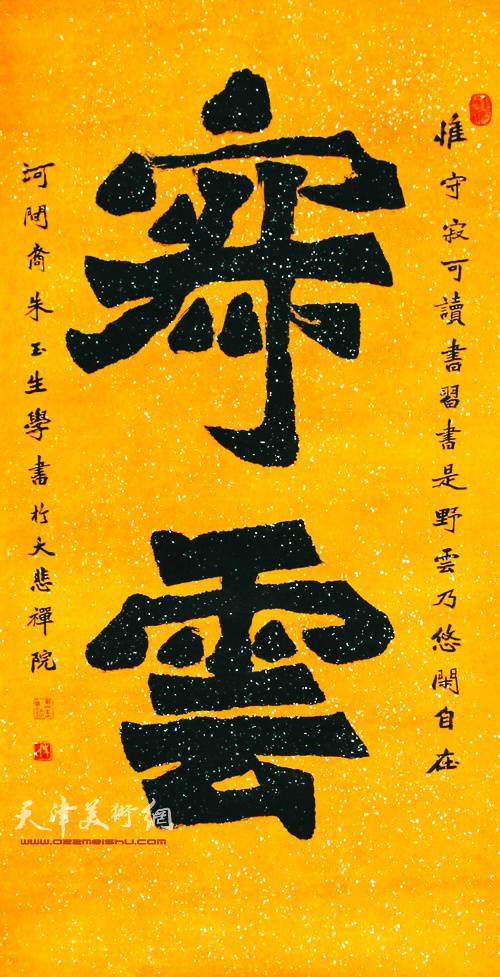 惟守寂可讀書習書是野雲乃悠閑自在
寂雲
河間裔朱玉生學書於大悲禪院
天津美術網
www.022meishu.com